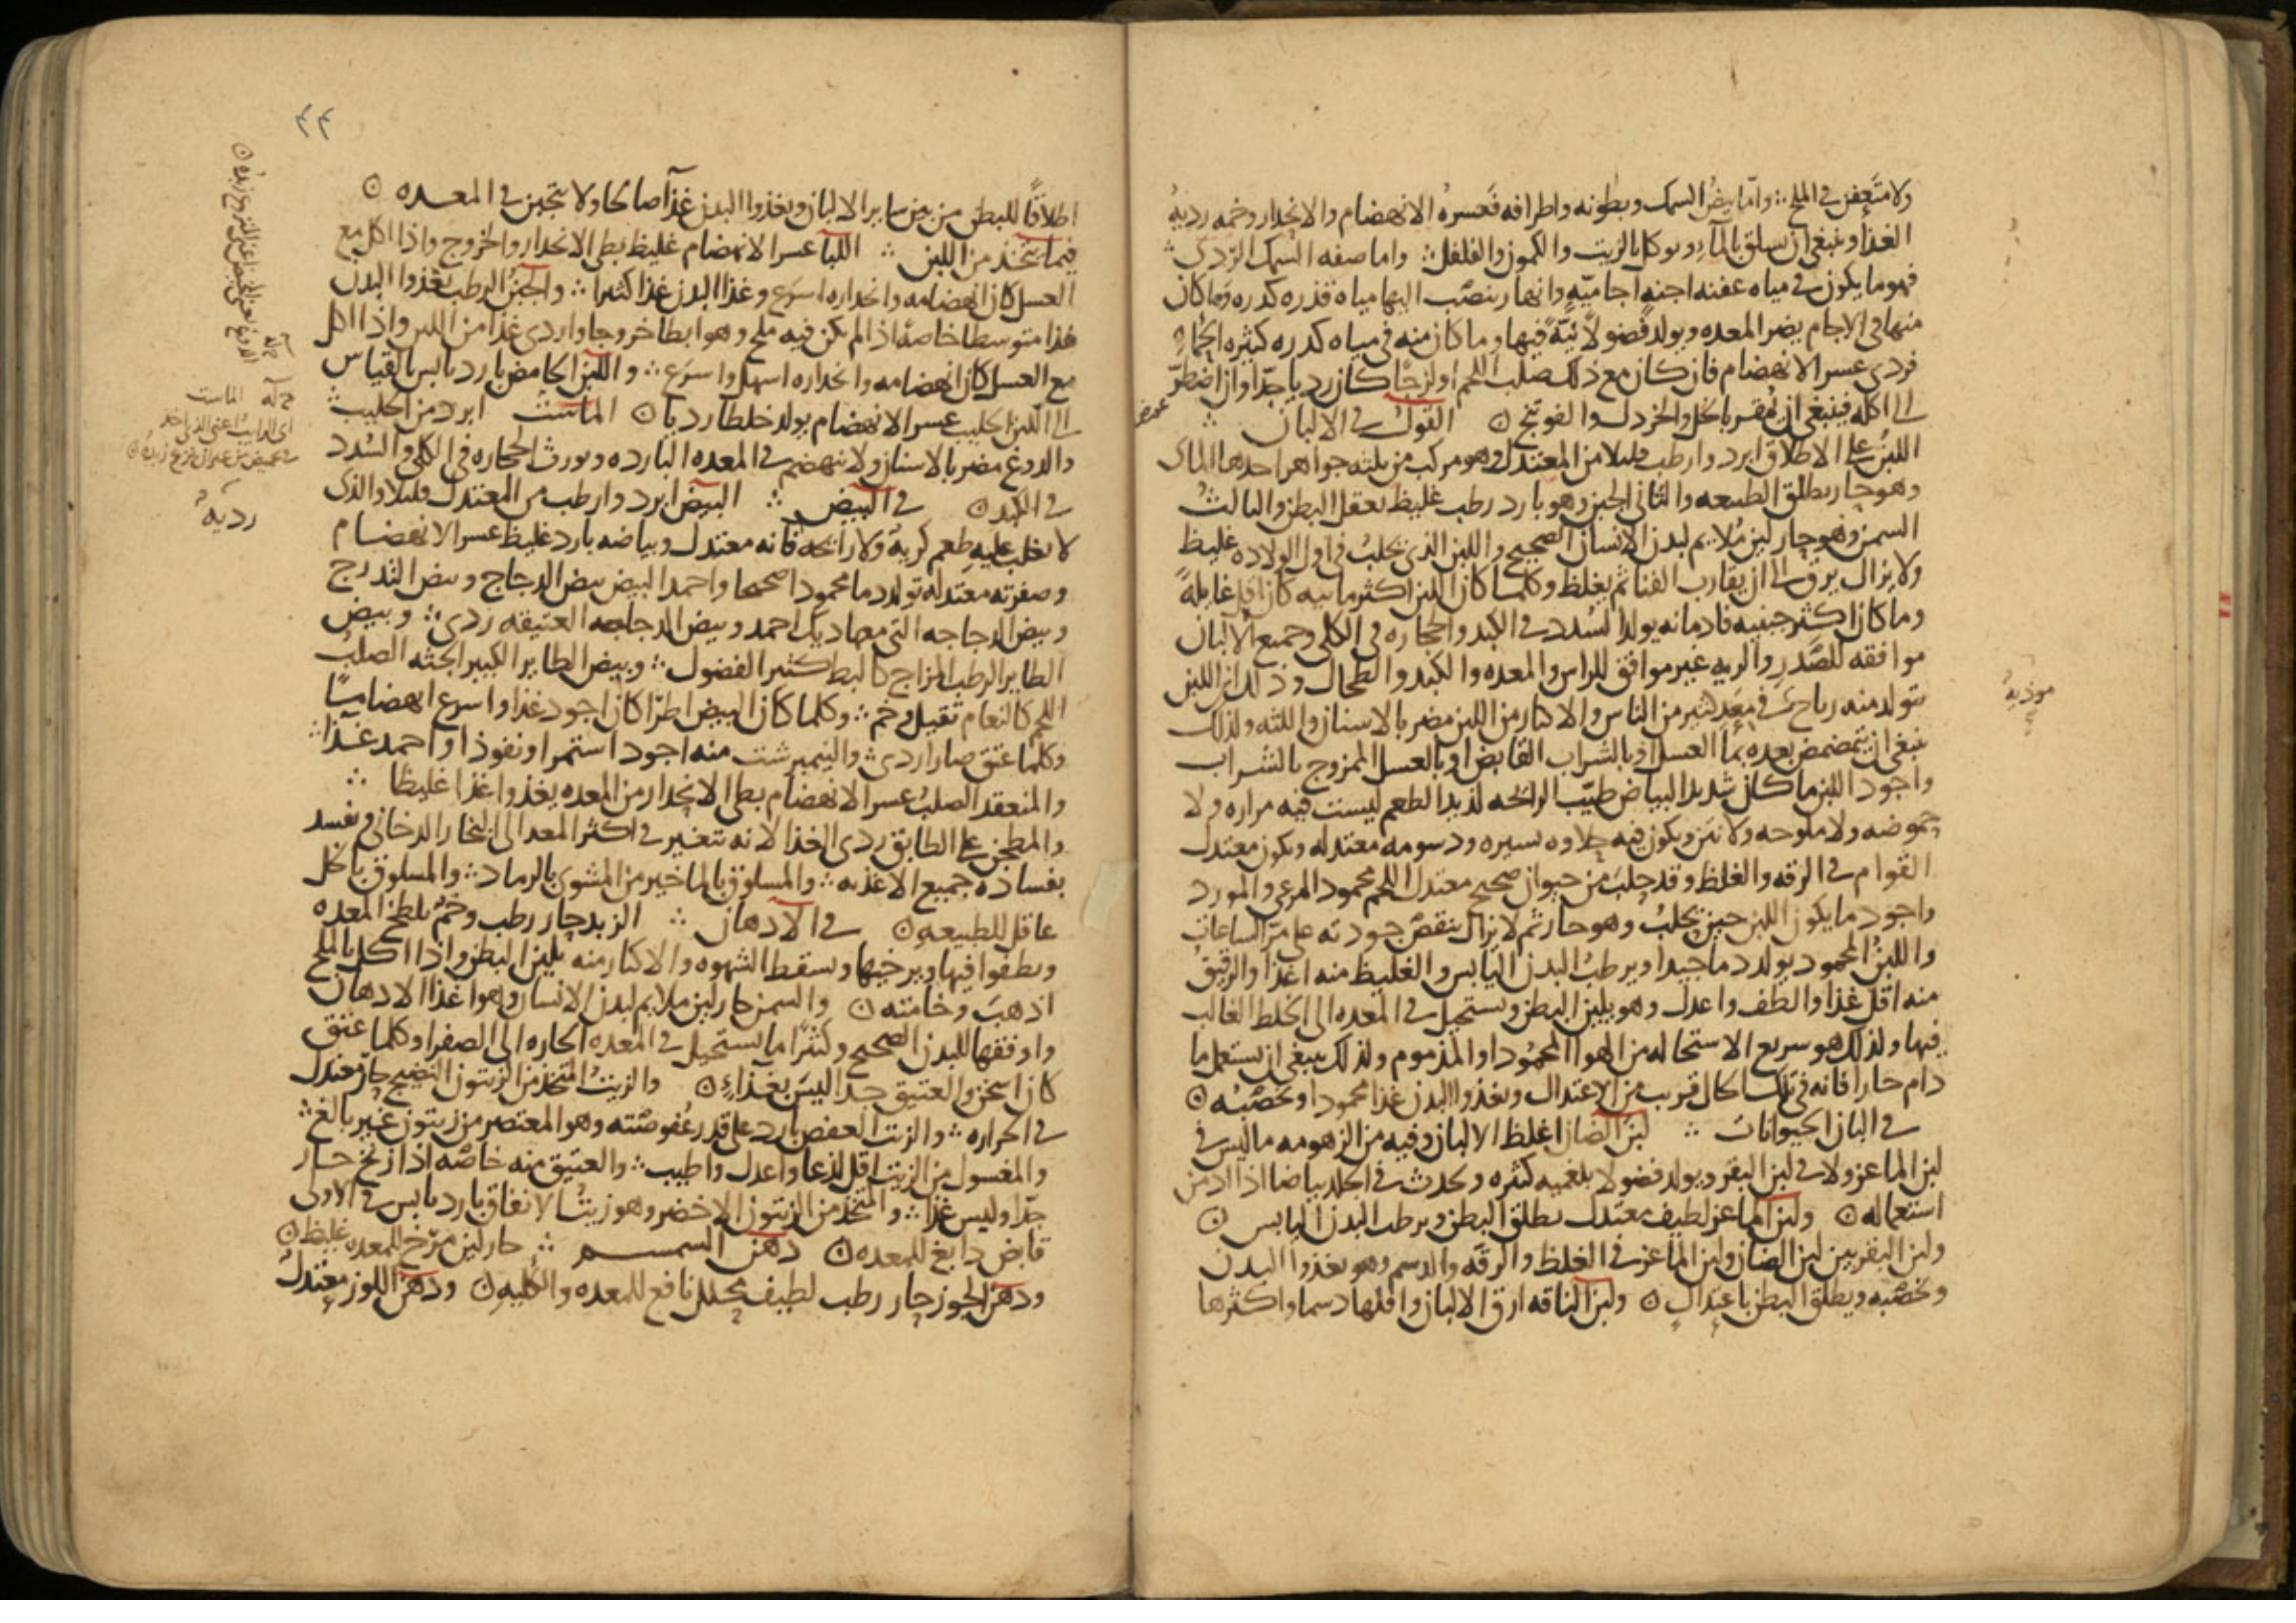 ولا متعفن في الملح ؞ واما بيض السمك وبطونه واطرافه فعسره الانهضام والانحدار وخمه رديه
الغذا وينبغي ان يسلق بالماء ويوكل بالزيت والكمون والفلفل ؞ واما صفه السمك الردي ؞
فهو ما يكون في مياه عفنه اجنه اجاميه وانهار ينصب اليها مياه قذره كدره وما كان
منها في الاجام يضر المعده ويولد فضولا نيّة فيها وما كان منه في مياه كدره كثيره الحماه
فردي عسر الانهضام فان كان مع ذلك صلب اللحم او لزجًا كان رديا جدا وان اضطر
الى اكله فينبغي ان يمقر بالخل والخردل والفوتنج ۞ القول في الالبان ؞
اللبن على الاطلاق ابرد وارطب قليلا من المعتدل وهو مركب من ثلثه جواهر احدها الماي
وهو حار يطلق الطبيعه والثاني الجبن وهو بارد رطب غليظ يعقل البطن والثالث
السمن وهو حار لين ملايم لبدن الانسان الصحيح واللبن الذي يحلب في اول الولاده غليظ
ولا يزال يرق الى ان يقارب الفنا ثم يغلظ وكلما كان اللبن اكثر ماييه كان اقل غايلةً
وما كان اكثر جبنيه فادمانه يولد السدد في الكبد والحجاره في الكلى وجميع الالبان
موافقه للصدر والريه غير موافق للراس والمعده والكبد والطحال وذلك ان اللبن
يتولد منه رياح في معد كثير من الناس والاكثار من اللبن مضر بالاسنان واللثه ولذلك
ينبغي ان يتمضمض بعده بما العسل او بالشراب القابض او بالعسل الممزوج بالشراب
واجود اللبن ما كان شديد البياض طيب الرائحه لذيذ الطعم ليست فيه مراره ولا
حموضه ولا ملوحه ولا نتن ويكون فيه حلاوه يسيره ودسومه معتدله ويكون معتدل
القوام في الرقه والغلظ وقد حلب من حيوان صحيح معتدل اللحم محمود المرعى والمورد
واجود ما يكون اللبن حين يحلب وهو حار ثم لا يزال ينقص جودته على مر الساعات
واللبن المحمود يولد دما جيدا ويرطب البدن اليابس والغليظ منه اغذا والرقيق
منه اقل غذا والطف واعدل وهو يلين البطن ويستحيل في المعده الى الخلط الغالب
فيها ولذلك هو سريع الاستحاله من الهوا المحمود او المذموم ولذلك ينبغي ان يستعمل ما
دام حارا فانه في تلك الحال قريب من الاعتدال ويغذوا البدن غذا محمودا ويخصبه ۞
في البان الحيوانات ؞ لبن الضان اغلظ الالبان وفيه من الزهومه ما ليس في
لبن الماعز ولا في لبن البقر ويولد فضولا بلغميه كثيره ويحدث في الجلد بياضا اذا ادمن
استعماله ۞ ولبن الماعز لطيف معتدل يطلق البطن ويرطب البدن اليابس ۞
ولبن البقر بين لبن الضان ولبن الماعز في الغلظ والرقه والدسم وهو يغذوا البدن
ويخصبه ويطلق البطن باعتدال ۞ ولبن الناقه ارق الالبان واقلها دسما واكثرها
موذيه
٤٤
اطلاقًا للبطن من بين ساير الالبان ويغذوا البدن غذآ صالحا ولا يتجبن في المعده ۞
فيما يتخذ من اللبن ؞ اللبا عسر الانهضام غليظ بطي الانحدار والخروج واذا اكل مع
العسل كان انهضامه وانحداره اسرع وغذا البدن غذا كثيرا ؞ والجبن الرطب يغذوا البدن
غذا متوسطا خاصة اذا لم يكن فيه ملح وهو ابطا خروجا واردى غذا من اللبن واذا اكل
مع العسل كان انهضامه وانحداره اسهل واسرع ؞ واللبن الحامض بارد يابس بالقياس
الى اللبن الحليب عسر الانهضام يولد خلطا رديا ۞ الماست ابرد من الحليب ؞
والدوغ مضر بالاسنان ولا ينهضم في المعده البارده ويورث الحجاره في الكلى والسدد
في الكبد ۞ في البيض ؞ البيض ابرد وارطب من المعتدل قليلا والذي
لا يغلب عليه طعم كريه ولا رائحه فانه معتدل وبياضه بارد غليظ عسر الانهضام
وصفرته معتدله تولد دما محمودا صحيحا واحمد البيض بيض الدجاج وبيض التدرج
وبيض الدجاجه التي معها ديك احمد وبيض الدجاجه العتيقه ردي ؞ وبيض
الطاير الرطب المزاج كالبط كثير الفضول ؞ وبيض الطاير الكبير الجثه الصلب
اللحم كالنعام ثقيل وخم ؞ وكلما كان البيض اطرا كان اجود غذا واسرع انهضاما
وكلما عتق صار اردى ؞ والنيمبرشت منه اجود استمرا ونفوذا واحمد غذا ؞
والمنعقد الصلب عسر الانهضام بطي الانحدار من المعده يغذوا غذا غليظا ؞
والمطجن على الطابق ردي الغذا لانه يتغير في اكثر المعد الى البخار الدخاني ويفسد
بفساده جميع الاغذيه ؞ والمسلوق بالما خير من المشوي بالرماد ؞ والمسلوق بالخل
عاقل للطبيعه ۞ في الادهان ؞ الزبد حار رطب وخم يلطخ المعده
ويطفوا فيها ويرخيها ويسقط الشهوه والاكثار منه يلين البطن واذا اكل بالملح
اذهب وخامته ۞ والسمن حار لين ملايم لبدن الانسان وهو اغذا الادهان
واوفقها للبدن الصحيح وكثيرًا ما يستحيل في المعده الحاره الى الصفرا وكلما عتق
كان اسخن والعتيق جدا ليس بغذاء ۞ والزيت المتخذ من الزيتون النضيج حار معتدل
في الحراره ؞ والزيت العفص بارد على قدر عفوصته وهو المعتصر من زيتون غير بالغ ؞
والمغسول من الزيت اقل لذعا واعدل واطيب ؞ والعتيق منه خاصه اذا زنخ حار
جدا وليس غذا ؞ والمتخذ من الزيتون الاخضر وهو زيت الانفاق بارد يابس في الاولى
قابض دابغ للمعده ۞ دهن السمسم ؞ حار لين مرخ للمعده غليظ ۞
ودهن الجوز حار رطب لطيف محلل نافع للمعده والكليه ۞ ودهن اللوز معتدل
الماست
رديه